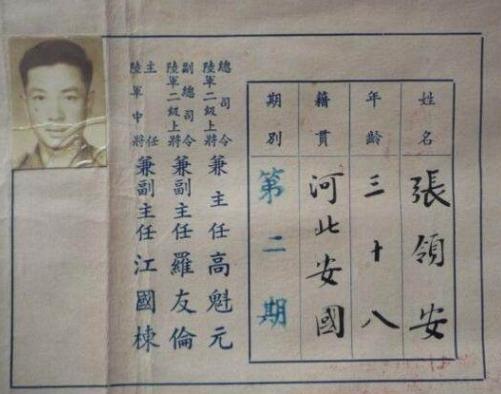 姓名 張領安
年齡 三十八
籍貫 河北安國
期別 第二期
總司令
陸軍二級上將 兼主任 高魁元
副總司令
陸軍二級上將 兼副主任 羅友倫
主任
陸軍中將 兼副主任 江國棟